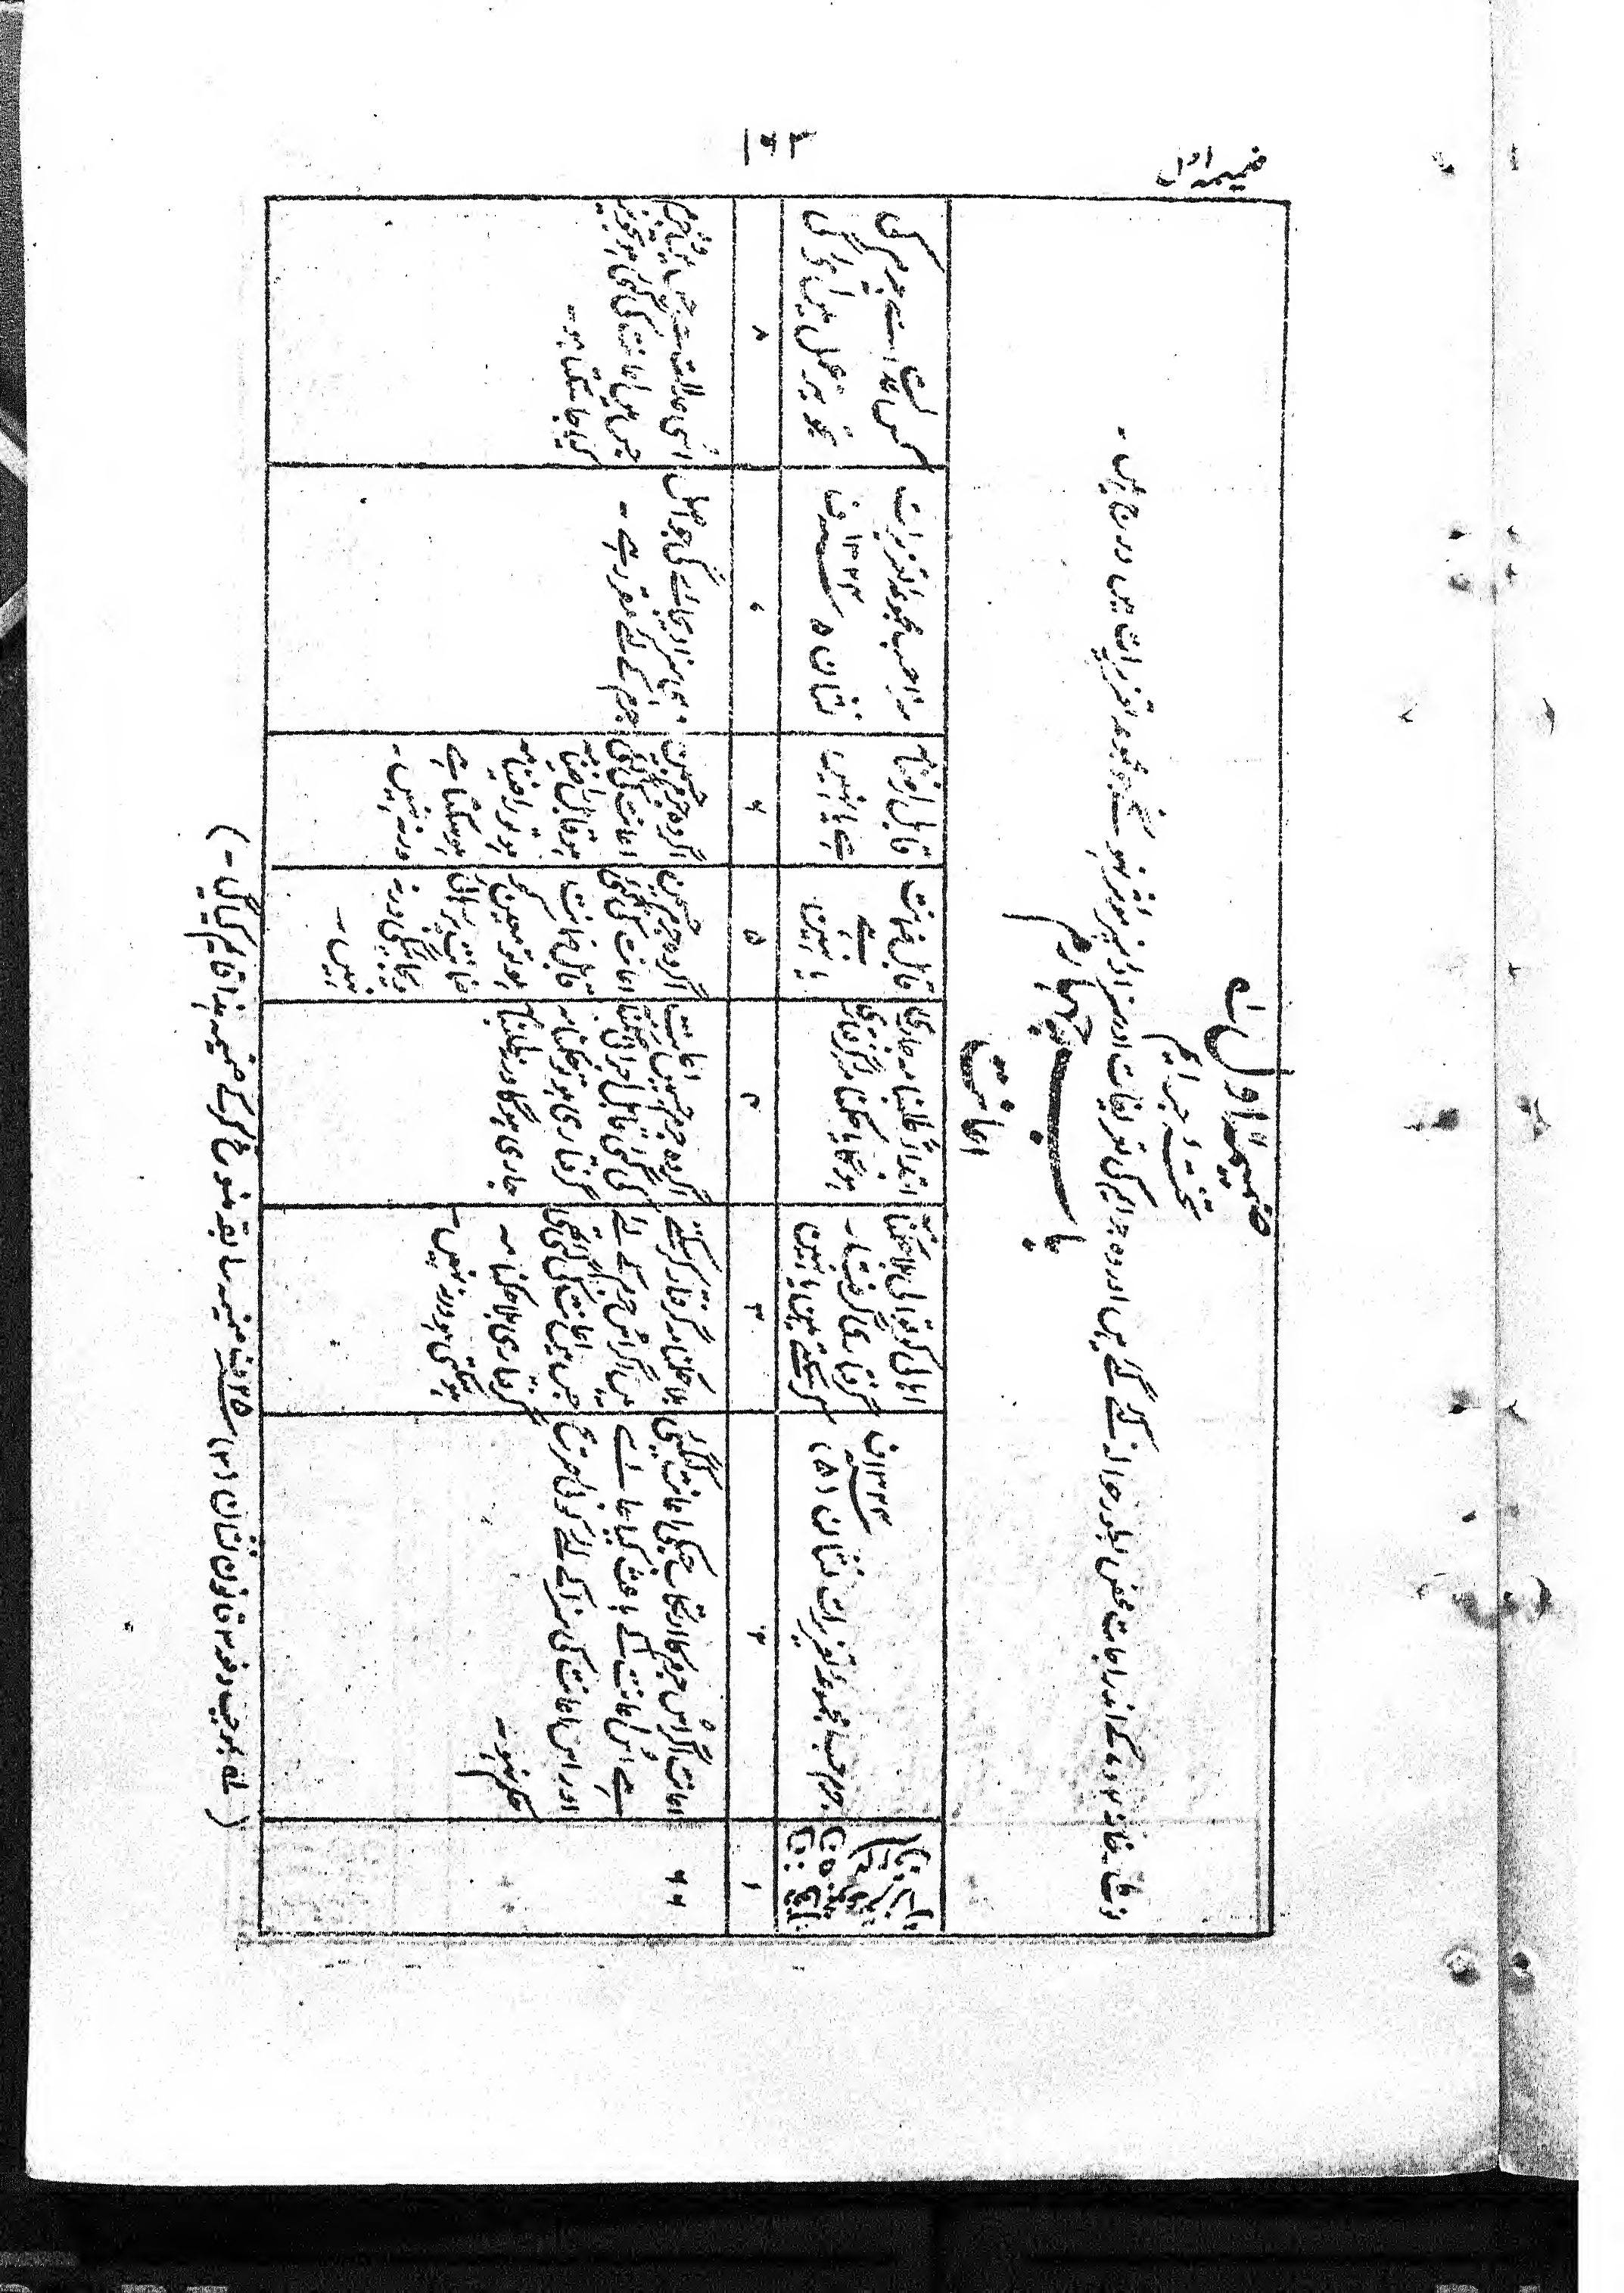 ضمیمہ اول
۱۶۳
ضمیمہ اول لہ
تختہ جرائم
نوٹ۔ خانہ دوم کے اندراجات محض بطور حوالہ کے گئے ہیں اور وہ جرائم کی تعریفات اور سزا نہیں جو مجموعہ تعزیرات میں درج ہیں۔
باب چہارم
اعانت
جرم حسب مجموعہ تعزیرات نشان (۵)
۱۳۲۴ف
اہالی کوتوالی بلا حکمنامہ
گرفتاری گرفتار
کر سکتے ہیں یا نہیں
ابتداءً طلبنامہ جاری
ہوگا یا حکمنامہ گرفتاری
قابل ضمانت
ہے
یا نہیں
قابل راضینامہ
ہے یا نہیں
سزا حسب مجموعہ تعزیرات
نشان ۵ ۱۳۲۴ف
کس عدالت سے جرم کی
تجویز عمل میں آئے گی
۱
۲
۳
۴
۵
۶
۷
۸
۶۶
اعانت اگر اس جرم کا ارتکاب جس کی اعانت کی گئی
ہے اس اعانت کے باعث کیا جائے
اور اس اعانت کی سزا کے لئے کوئی صریح
حکم نہو۔
بلا حکمنامہ گرفتار کر سکتے
ہیں اگر اس جرم کے لئے
جس میں اعانت کی گئی
گرفتاری بلا حکمنامہ
ہو سکتی ہو ورنہ نہیں۔
اگر وہ جرم جس میں اعانت
کی گئی قابل اجرائے حکمنامہ
گرفتاری ہو تو حکمنامہ
جاری ہوگا ورنہ طلبنامہ
اگر وہ جرم جس میں
اعانت کی گئی
قابل ضمانت
ہو تو معین کی
ضمانت پر رہائی
دیجائیگی ورنہ
نہیں۔
اگر وہ جرم جس میں
اعانت کی گئی
ہو قابل راضینامہ
ہو تو راضینامہ
ہو سکتا ہے
ورنہ نہیں۔
وہی سزا دیجائے گی جو اصل
جرم کے لئے مقرر ہے۔
اسی عدالت سے جس میں جرم
جس میں اعانت کی گئی ہو تجویز
کیا جا سکتا ہو۔
(لہ بموجب دفعہ ۲ قانون نشان (۲) ۱۳۲۵ف ضمیمہ سابقہ منسوخ کر کے ضمیمہ ہذا قائم کیا گیا۔)